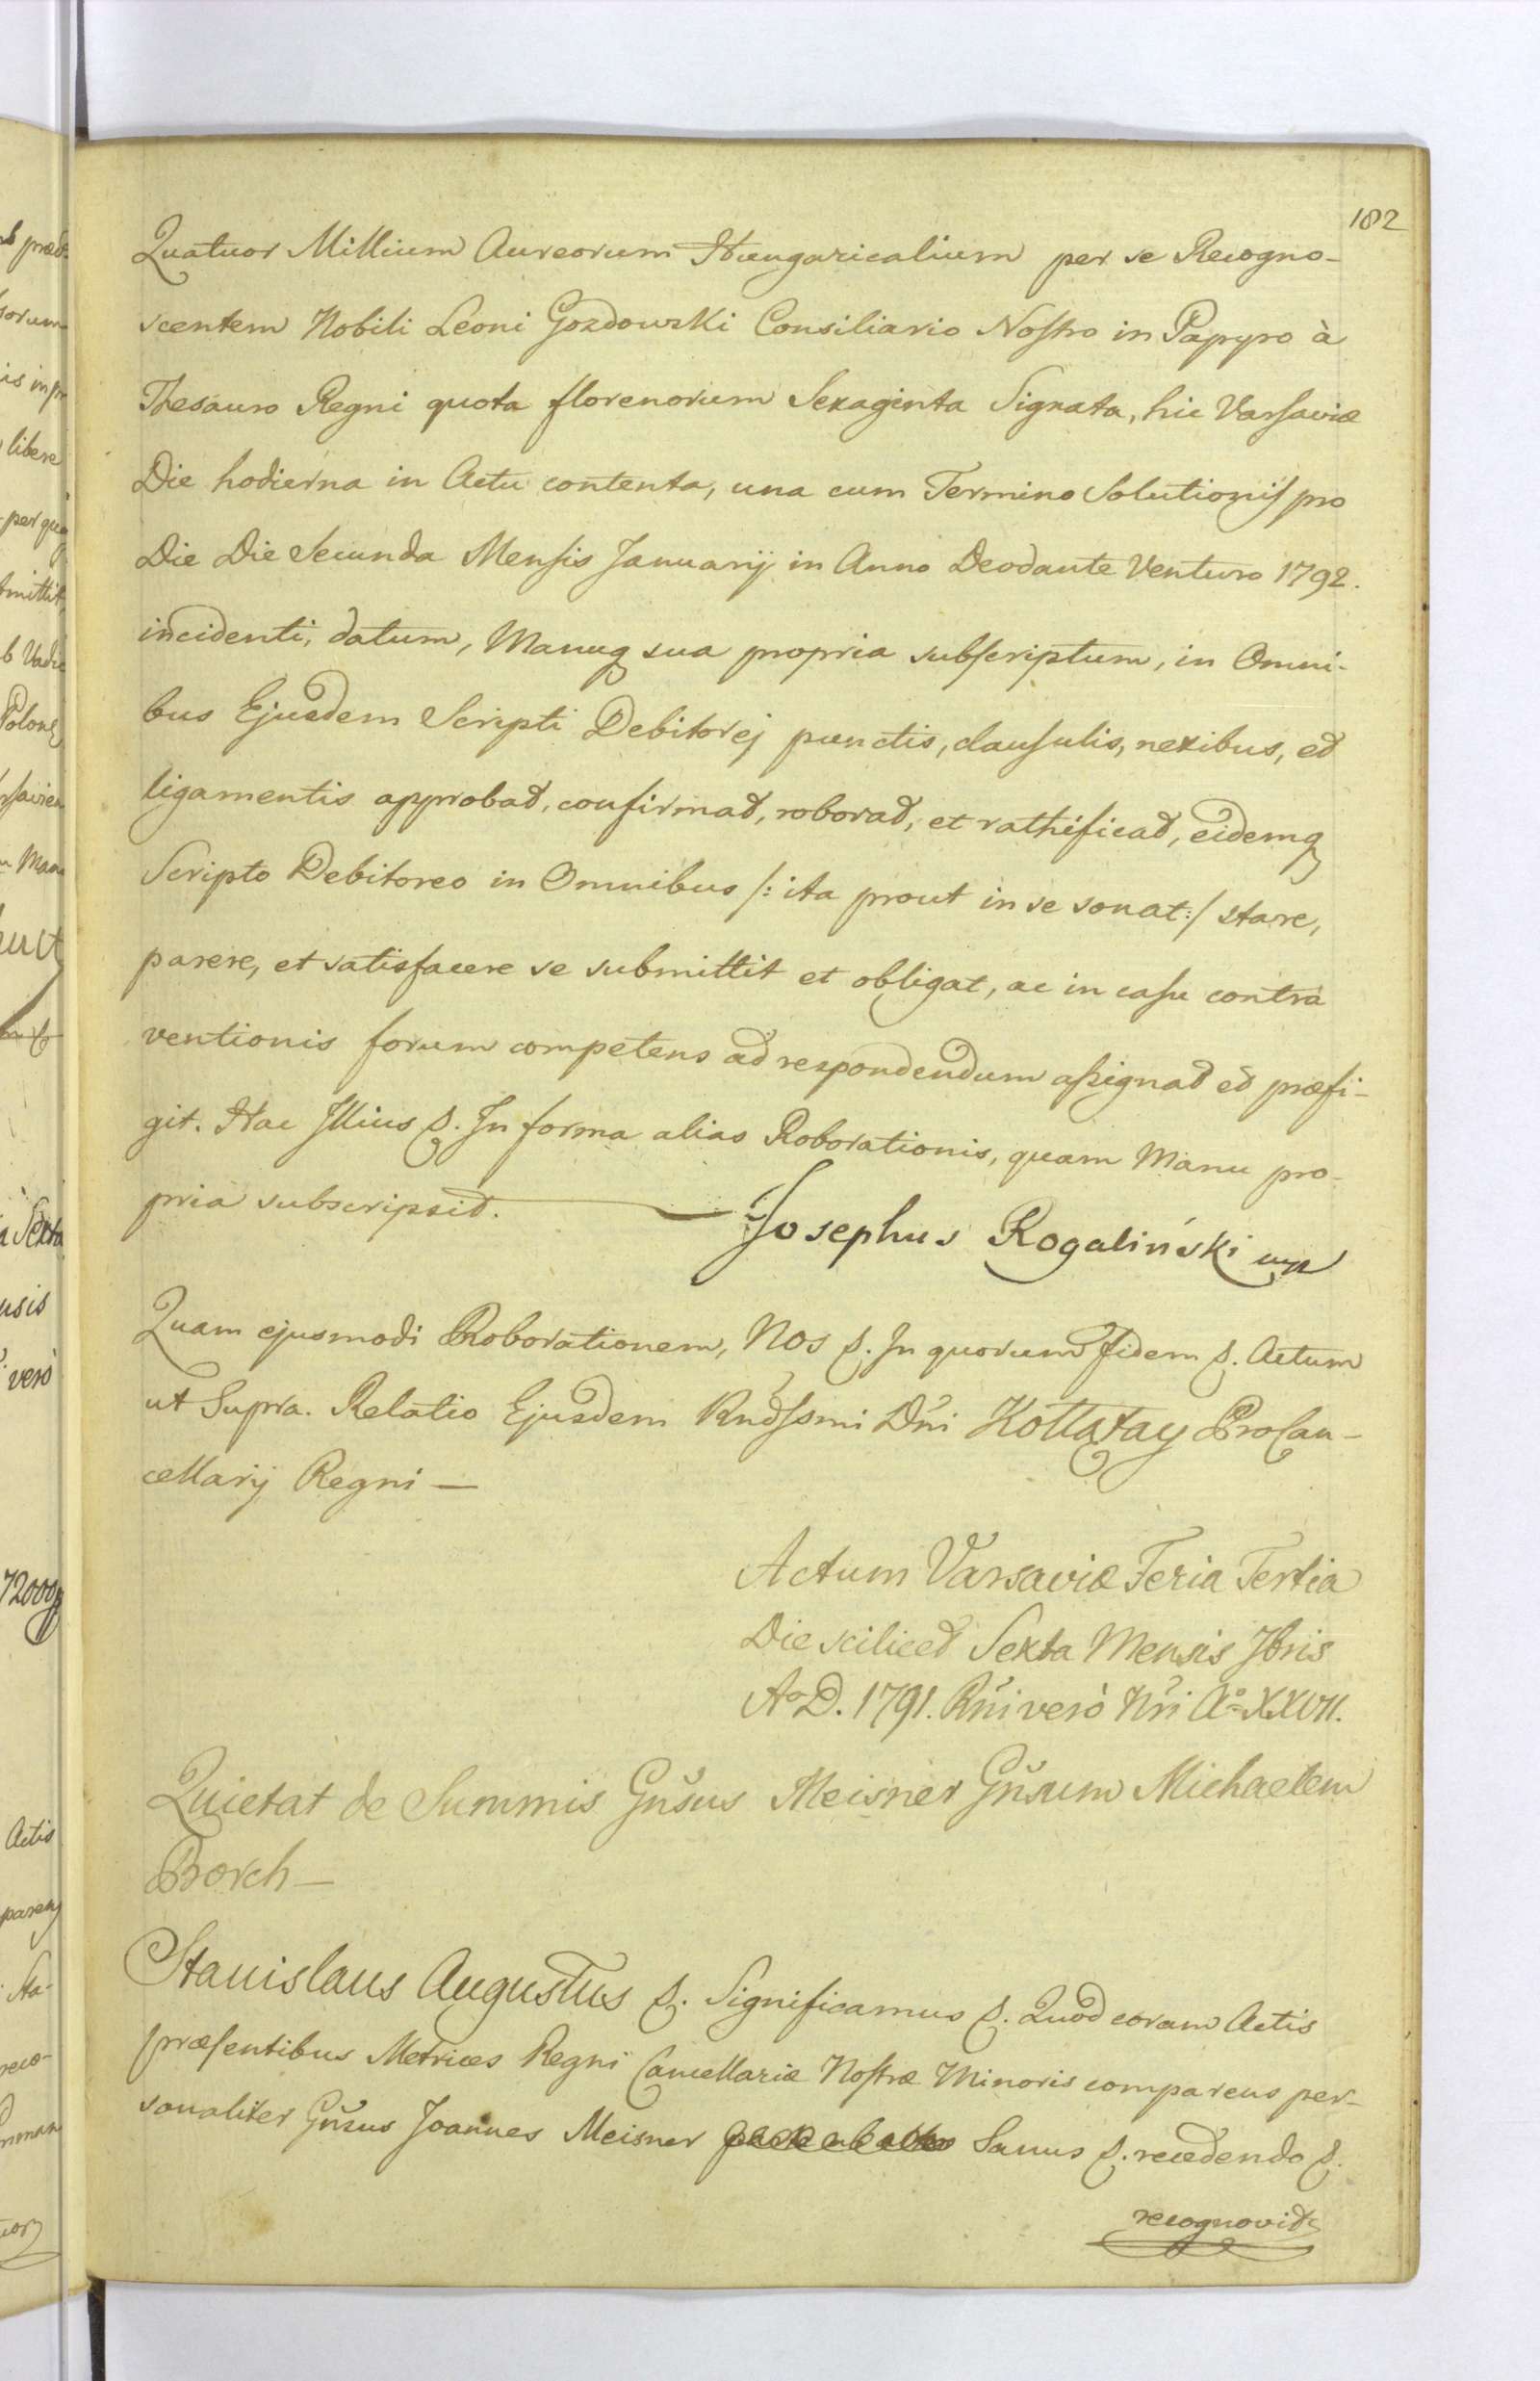 102
Quatuor Millium Aureorum Hungaricalium per se Recogno-
scentem Nobili Leoni Gozdowski Consiliario Nostro in Papyro à
Thesauro Regni quota florenorum Sexaginta Signata, hic Varsaviæ
Die hodierna in Actu contenta, una cum Termino Solutionis pro
Die Die Secunda Mensis Januarij in Anno Deodante Venturo 1792.
incidenti, datum, Manuq sua propria subscriptum, in Omni-
bus Ejusdem Scripti Debitorej punctis, clausulis, nexibus, et
ligamentis approbat, confirmat, roborat, et rathificat, eidemq
Scripto Debitoreo in Omnibus /: ita prout in se sonat :/ stare,
parere, et satisfacere se submittit et obligat, ac in casu contra
ventionis forum competens ad respondendum assignat et præfi-
git. Hac Illius &. In forma alias Roborationis, quam Manu pro-
pria subscripsit.
Josephus Rogaliński mp
Quam ejusmodi Roborationem, Nos &. In quorum fidem &. Actum
ut Supra. Relatio Ejusdem Rndssmi Dni Kołłątay ProCan-
cellarij Regni —
Actum Varsaviæ Feria Tertia
Die scilicet Sexta Mensis 7bris
Ao D. 1791. Rni verò Nri Ao XXVII.
Quietat de Summis Gnsus Meisner Gnsum Michaelem
Borch —
Stanislaus Augustus &. Significamus &. Quod coram Actis
præsentibus Metrices Regni Cancellariæ Nostræ Minoris comparens per-
sonaliter Gnsus Joannes Meisner Sanus &. recedendo &.
recognovit